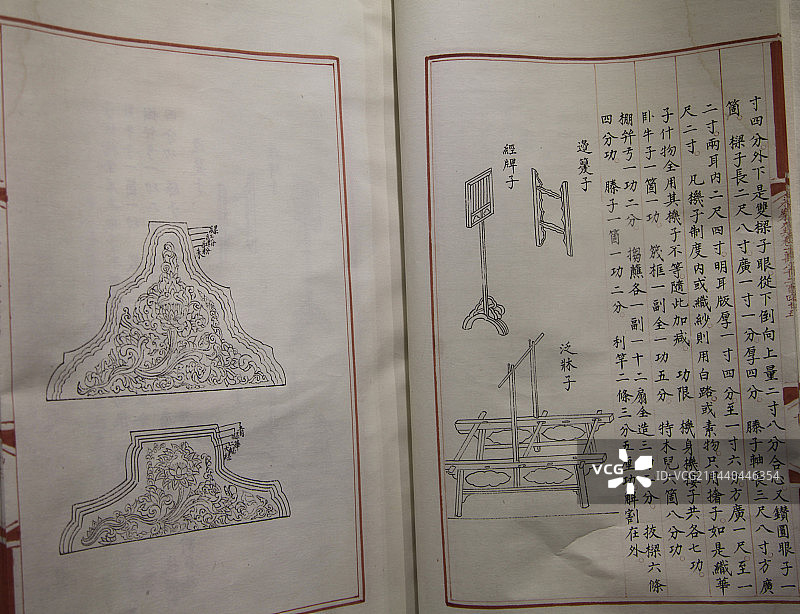 寸四分外下是雙樑子眼從下倒向上量二寸八分合又鑽圓眼子一
箇 樑子長二尺八寸廣一寸一分厚四分 滕子軸長三尺八寸方廣
二寸兩耳内二尺四寸明耳版厚一寸四分至一寸六分方廣一尺至一
尺二寸 凡機子制度内或織紗則用白路或素物只用搶子如是織華
子什物全用其機子不等隨此加减 功限 機身機樓子共各七功
卧牛子一箇一功 筬框一副全一功五分 特木兒箇八分功
棚弁弓一功二分 搊蘸各一副一十二扇全造三分 按樑六條
四分功 滕子一箇一功二分 利竿二條三分五功解割在外
造篗子
經牌子
泛牀子
VCG
VCG.COM
ID:VCG211449446354